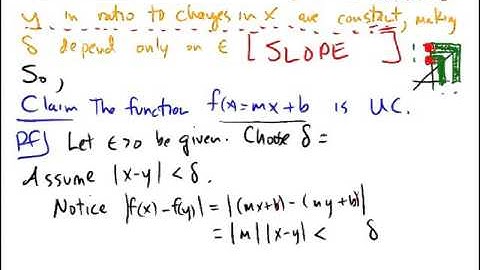 y in ratio to changes in x are constant, making
δ depend only on ϵ [SLOPE]
So,
Claim The function f(x)=mx+b is UC.
Pf) Let ϵ>0 be given. Choose δ =
Assume |x-y| < δ.
Notice |f(x)-f(y)| = |(mx+b) - (my+b)|
= |m||x-y| < δ